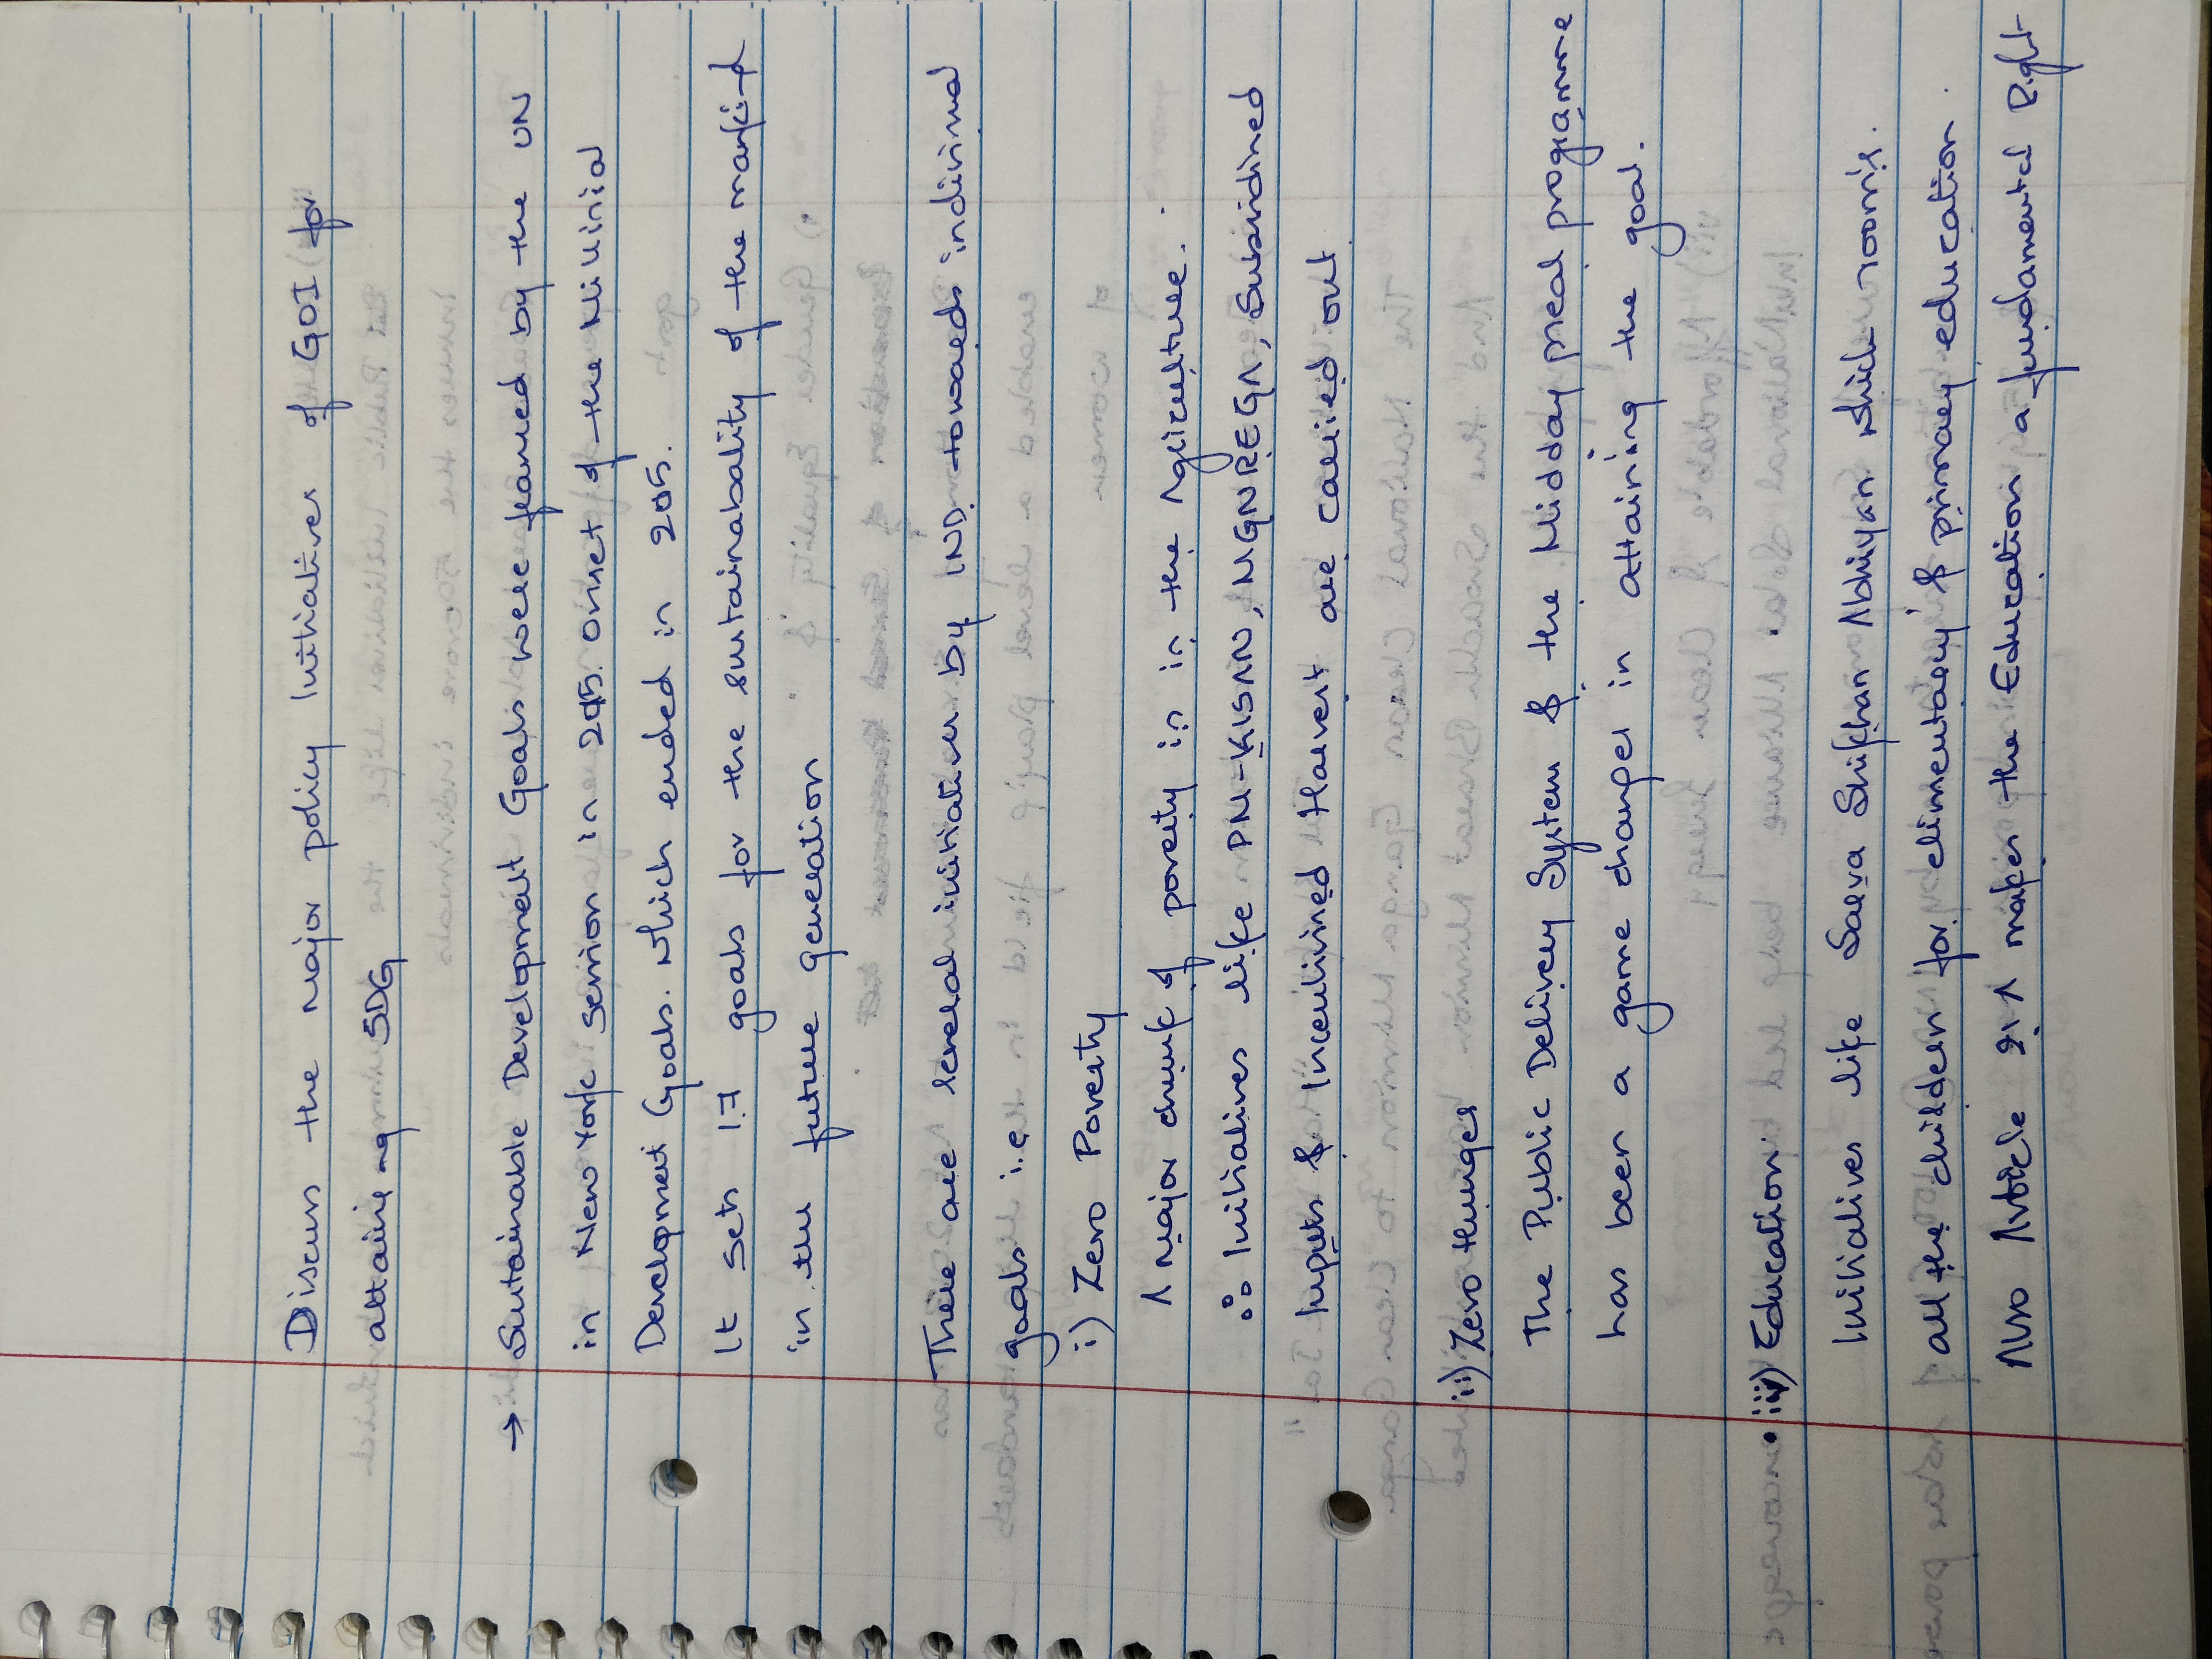 Discuss the major policy Initiatives of GOI for
attaining SDG
→ Sustainable Development Goals were framed by the UN
in New York session in 2015. onset of the Millinial
Development Goals. which ended in 2015.
It sets 17 goals for the sustainabality of the mankind
in the future generation
There are several initiatives by IND. towards indiviual
goals i.e
i) Zero Poverty
A major chunk of poverty is in the Agriculture.
∴ Initiatives like PM-KISAN, MGNREGA, Subsidined
Inputs & Incentivined Harvest are carried out
ii) Zero Hunger
The Public Delivery System & the Midday meal programme
has been a game changer in attaining the goal.
iii) Education
Initiatives like Sarva Shikhan Abhiyan which
all the children for elimentary & primary education.
Also Article 21A makes the Education a fundamental Right